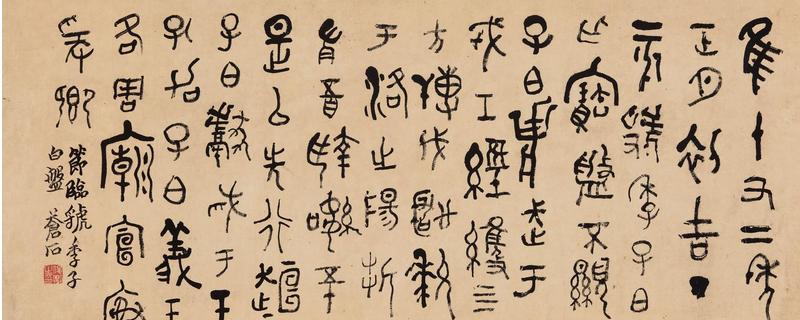 隹十又二年
正月初吉丁
亥虢季子白
乍寶盤不顯
子白壯武于
戎工經維四
方博伐玁狁
于洛之陽折
首五百執訊五十
是以先行桓桓
子白獻馘于王
孔加子白義王
各周廟宣榭
爰卿
節臨虢季子
白盤 蒼石